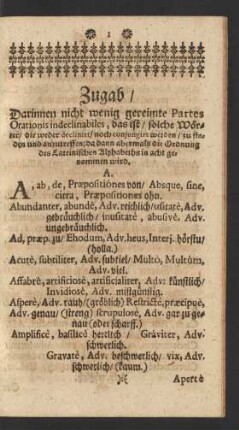 1
Zugab /
Darinnen nicht wenig gereimte Partes
Orationis indeclinabiles, das ist / solche Wör-
ter / die weder declinirt / noch conjungirt werden / zu fin-
den und anzutreffen; da dann abermals die Ordnung
des Lateinischen Alphabeths in acht ge-
nommen wird.
A.
A, ab, de, Præpositiones von / Absque, sine,
citra, Præpositiones ohn.
Abundanter, abundè, Adv. reichlich / usitatè, Adv.
gebräuchlich / inusitatè, abusivè. Adv.
ungebräuchlich.
Ad, præp. zu / Ehodum, Adv. heus, Interj. hörstu /
(holla.)
Acutè, subtiliter, Adv. subtiel / Multò, Multùm,
Adv. viel.
Affabrè, artificiosè, artificialiter, Adv. künstlich /
Invidiosè, Adv. mißgünstig.
Asperè, Adv. rauh / (gröblich) Restrictè, præcipuè,
Adv. genau / (streng) scrupulosè, Adv. gar zu ge-
nau (oder scharff.)
Amplificè, basilicè herrlich / Gráviter, Adv.
schwerlich.
Gravatè, Adv. beschwerlich / vix, Adv.
schwerlich / (kaum.)
Apertè